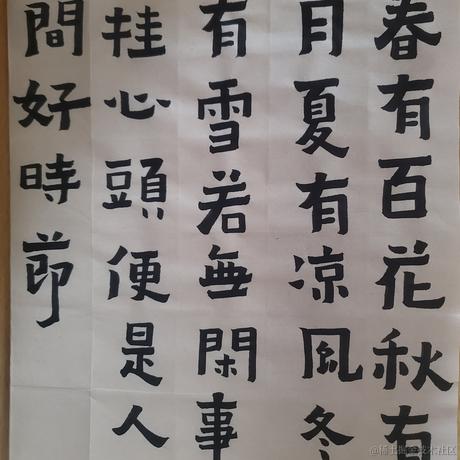 春有百花秋有
月夏有凉風冬
有雪若無閑事
挂心頭便是人
間好時節
@稀土掘金技术社区